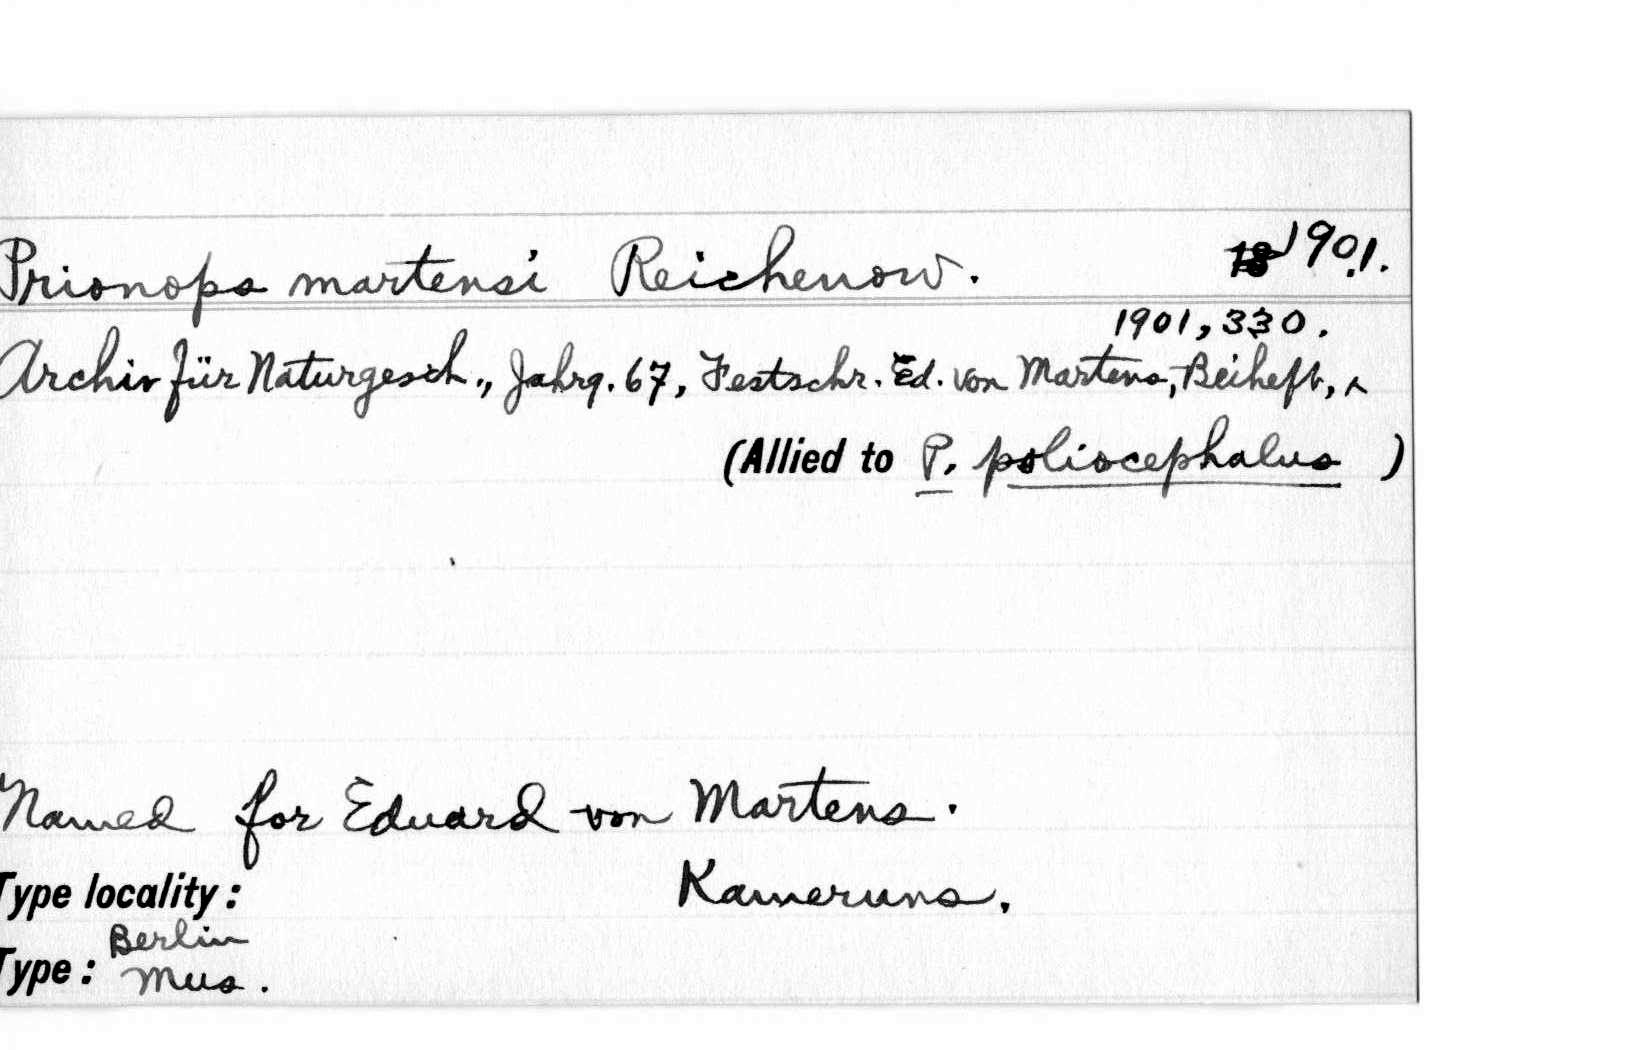 Prionops martensi Reichenow. 18 1901.
1901, 330.
Archiv für Naturgesch., Jahrg. 67, Festschr. Ed. von Martens, Beiheft, ^
(Allied to P. poliocephalus )
Named for Eduard von Martens.
Type locality: Kameruns.
Berlin
Type: Mus.